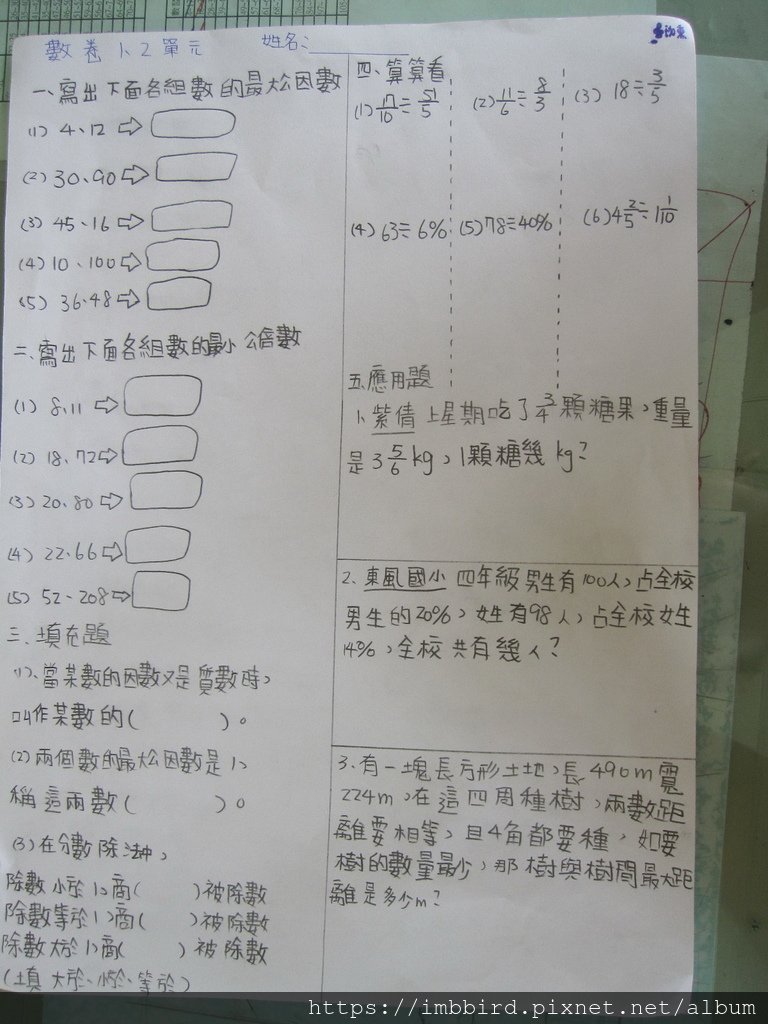 數卷 1、2單元 姓名:
一、寫出下面各組數的最大公因數
(1) 4、12 ⇨
(2) 30、90 ⇨
(3) 45、16 ⇨
(4) 10、100 ⇨
(5) 36、48 ⇨
二、寫出下面各組數的最小公倍數
(1) 8、11 ⇨
(2) 18、72 ⇨
(3) 20、80 ⇨
(4) 22、66 ⇨
(5) 52、208 ⇨
三、填充題
(1)、當某數的因數又是質數時，
叫作某數的(    )。
(2)兩個數的最大公因數是1，
稱這兩數(    )。
(3)在分數除法中，
除數小於1，商(    )被除數
除數等於1，商(    )被除數
除數大於1，商(    )被除數
(填 大於、小於、等於)
四、算算看
(1) 17/10 ÷ 51/5 (2) 11/6 ÷ 8/3 (3) 18 ÷ 3/5
(4) 63÷6% (5) 78÷40% (6) 4 2/5 ÷ 1 1/10
五、應用題
1、紫倩上星期吃了3/4顆糖果，重量
是3 5/6 kg，1顆糖幾kg?
2、東風國小四年級男生有100人，占全校
男生的20%，女生有98人，占全校女生
14%，全校共有幾人?
3、有一塊長方形土地，長490m寬
224m，在這四周種樹，兩數距
離要相等，且4角都要種，如要
樹的數量最少，那樹與樹間最大距
離是多少m?
https://imbbird.pixnet.net/album